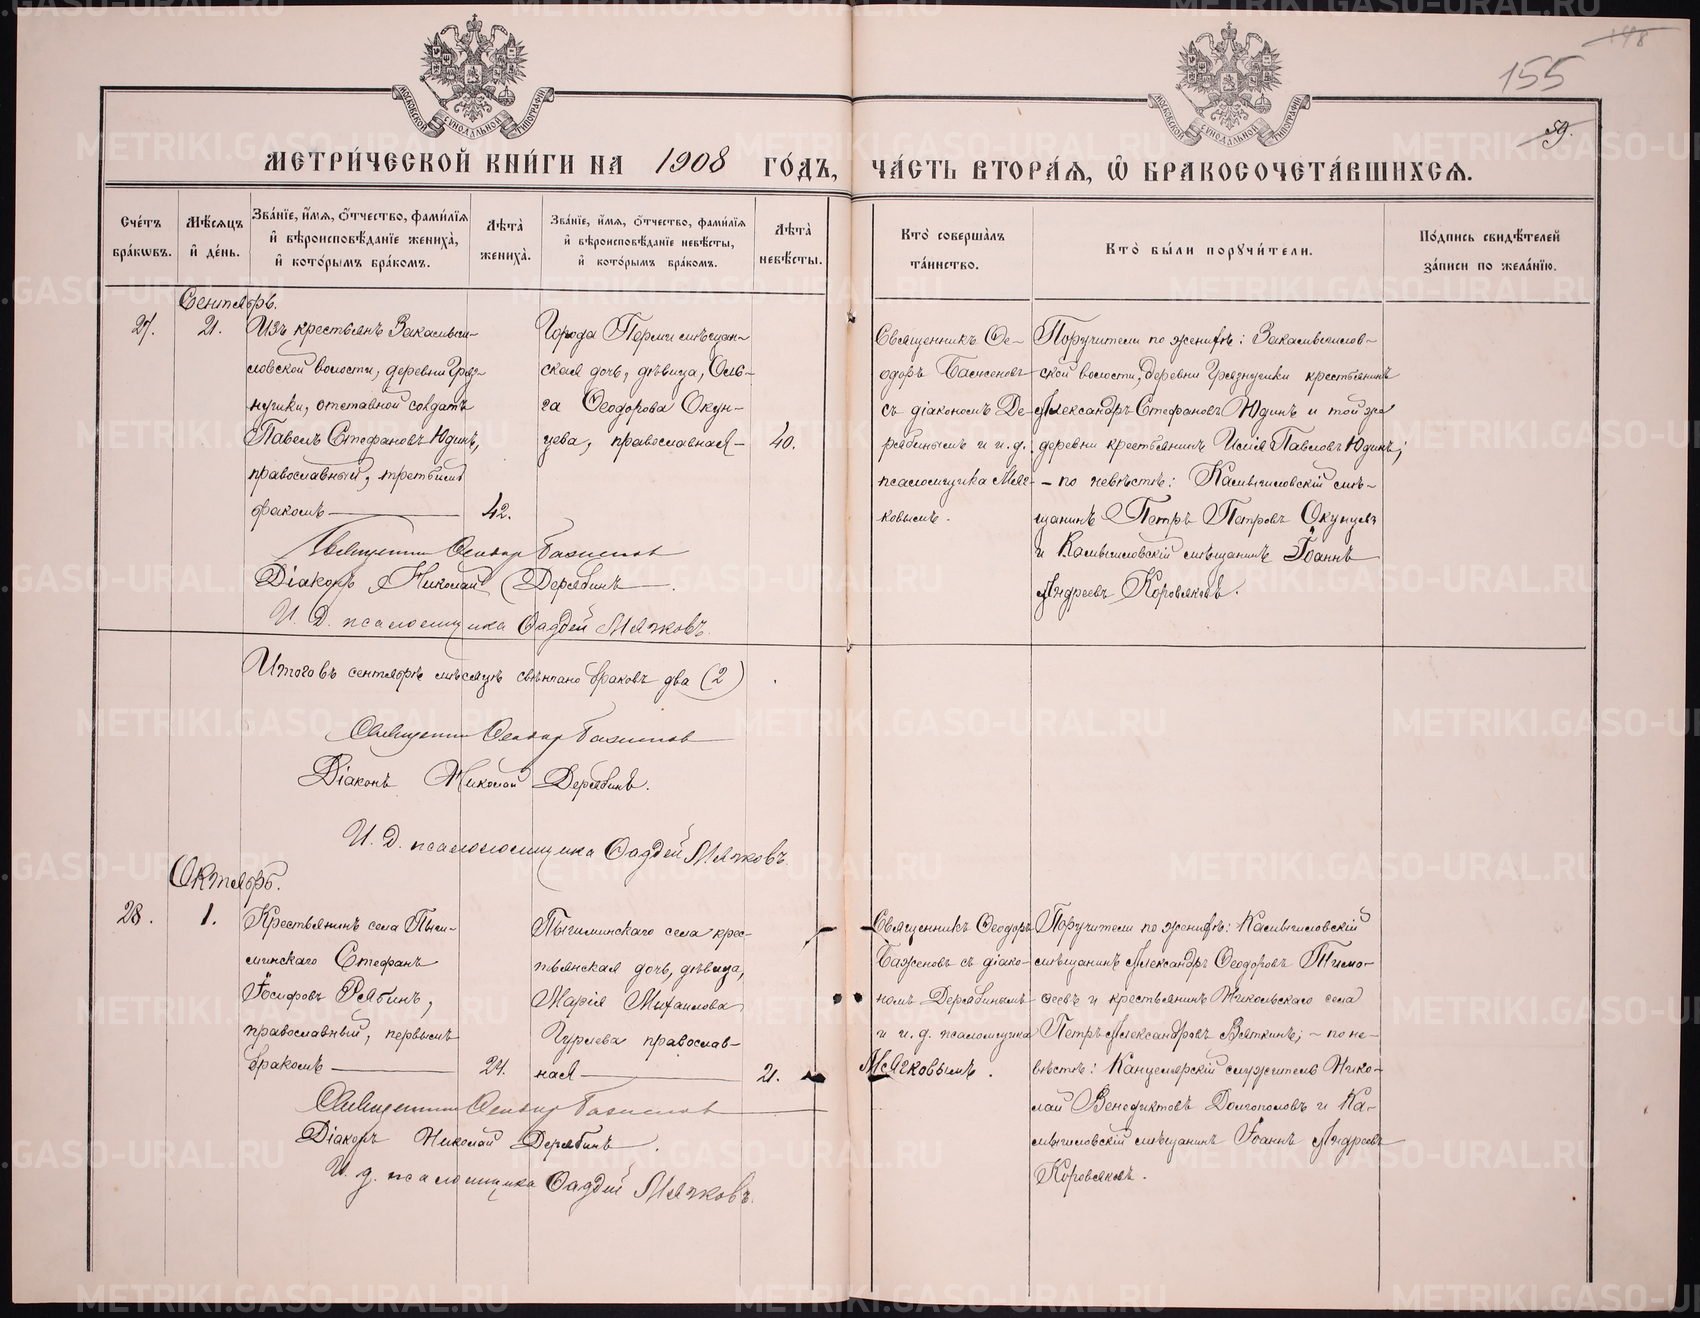 148
155
59.
МОСКОВСКОЙ СУНОДАЛЬНОЙ ТИПОГРАФІИ
МОСКОВСКОЙ СУНОДАЛЬНОЙ ТИПОГРАФІИ
МЕТРИ́ЧЕСКОЙ КНИ́ГИ НА 1908 ГО́ДЪ, ЧА́СТЬ ВТОРА́Я, Ѡ БРАКОСОЧЕТА́ВШИХСЯ.
Сче́тъ бра́кѡвъ.
Мѣ́сяцъ и҆ де́нь.
Зва́нїе, и҆́мя, ѻ҆́тчество, фами́лїя и҆ вѣроисповѣ́данїе жениха̀, и҆ кото́рымъ бра́комъ.
Лѣта̀ жениха̀.
Зва́нїе, и҆́мя, ѻ҆́тчество, фами́лїя и҆ вѣроисповѣ́данїе невѣ́сты, и҆ кото́рымъ бра́комъ.
Лѣта̀ невѣ́сты.
Кто̀ соверша́лъ та́инство.
Кто̀ бы́ли порꙋчи́тели.
По́дпись свидѣ́телей за́писи по жела́нїю.
Сентябрь.
27.
21.
Изъ крестьянъ Закамыш-
ловской волости, деревни Гряз-
нушки, отставной солдатъ
Павелъ Стефановъ Юдинъ,
православный, третьимъ
бракомъ
42.
Города Перми мѣщан-
ская дочь, дѣвица, Оль-
га Ѳеодорова Окун-
цева, православная
40.
Священникъ Ѳе-
одоръ Баженовъ
съ діакономъ Де-
рябинымъ и и. д.
псаломщика Мяч-
ковымъ.
Поручители по женихѣ: Закамышлов-
ской волости, деревни Грязнушки крестьянинъ
Александръ Стефановъ Юдинъ и той же
деревни крестьянинъ Илія Павловъ Юдинъ;
— по невѣстѣ: Камышловскій мѣ-
щанинъ Петръ Петровъ Окунцевъ
и Камышловскій мѣщанинъ Іоаннъ
Андреевъ Коровяковъ.
Священник Ѳеодор Баженов
Діаконъ Николай Дерябинъ.
И. Д. псаломщика Ѳаддей Мячковъ.
Итого въ сентябрѣ мѣсяцѣ свѣнчано браковъ два (2)
Священник Ѳеодор Баженов
Діаконъ Николай Дерябинъ.
И. Д. псаломщика Ѳаддей Мячковъ.
Октябрь.
28.
1.
Крестьянинъ села Пыш-
минскаго Стефанъ
Іосифовъ Рябинъ,
православный, первымъ
бракомъ
24.
Пышминскаго села крес-
тьянская дочь, дѣвица,
Марія Михаилова
Гурлева православ-
ная
21.
Священникъ Ѳеодоръ
Баженовъ съ діако-
номъ Дерябинымъ
и и. д. псаломщика
Мячковымъ.
Поручители по женихѣ: Камышловскій
мѣщанинъ Александръ Ѳеодоровъ Тимо-
ѳеевъ и крестьянинъ Никольскаго села
Петръ Александровъ Вяткинъ; — по не-
вѣстѣ: Канцелярскій служитель Нико-
лай Венедиктовъ Долгополовъ и Ка-
мышловскій мѣщанинъ Іоаннъ Андреевъ
Коровяковъ.
Священник Ѳеодор Баженов
Діаконъ Николай Дерябинъ.
И. д. псаломщика Ѳаддей Мячковъ.
METRIKI.GASO-URAL.RU